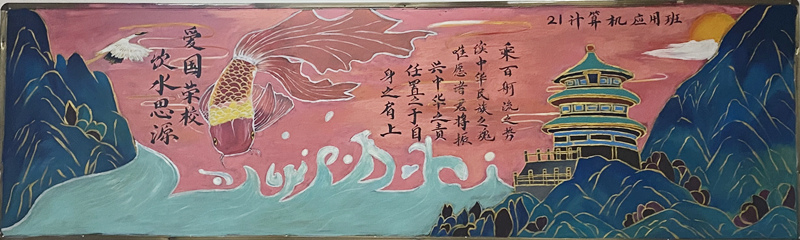 21计算机应用班
乘百舸流之势
中华民族之魂
唯愿诸君将振
兴中华之责
任置之于自
身之肩上
爱国荣校
饮水思源